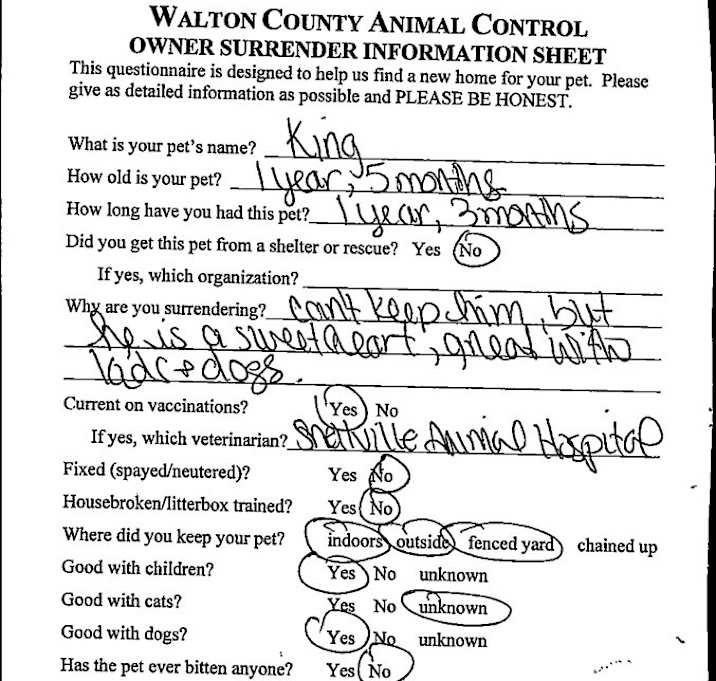 WALTON COUNTY ANIMAL CONTROL
OWNER SURRENDER INFORMATION SHEET
This questionnaire is designed to help us find a new home for your pet. Please
give as detailed information as possible and PLEASE BE HONEST.
What is your pet's name? King
How old is your pet? 1 year, 5 months
How long have you had this pet? 1 year, 3 months
Did you get this pet from a shelter or rescue? Yes No
If yes, which organization?
Why are you surrendering? can't keep him, but
he is a sweetheart, great with
kids & dogs.
Current on vaccinations? Yes No
If yes, which veterinarian? Snellville Animal Hospital
Fixed (spayed/neutered)? Yes No
Housebroken/litterbox trained? Yes No
Where did you keep your pet? indoors outside fenced yard chained up
Good with children? Yes No unknown
Good with cats? Yes No unknown
Good with dogs? Yes No unknown
Has the pet ever bitten anyone? Yes No